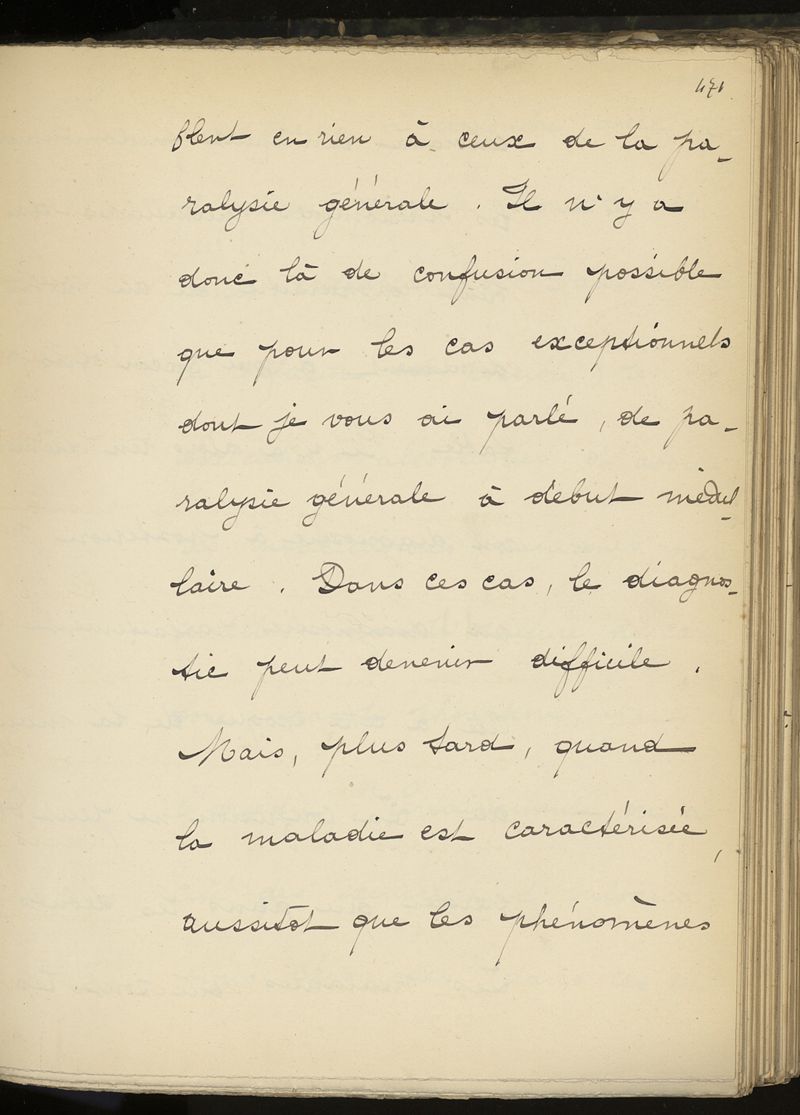 471
blent en rien à ceux de la pa-
ralysie générale. Il n'y a
donc là de confusion possible
que pour les cas exceptionnels
dont je vous ai parlé, de pa-
ralysie générale à début médul-
laire. Dans ces cas, le diagnos-
tic peut devenir difficile.
Mais, plus tard, quand
la maladie est caractérisée,
aussitôt que les phénomènes